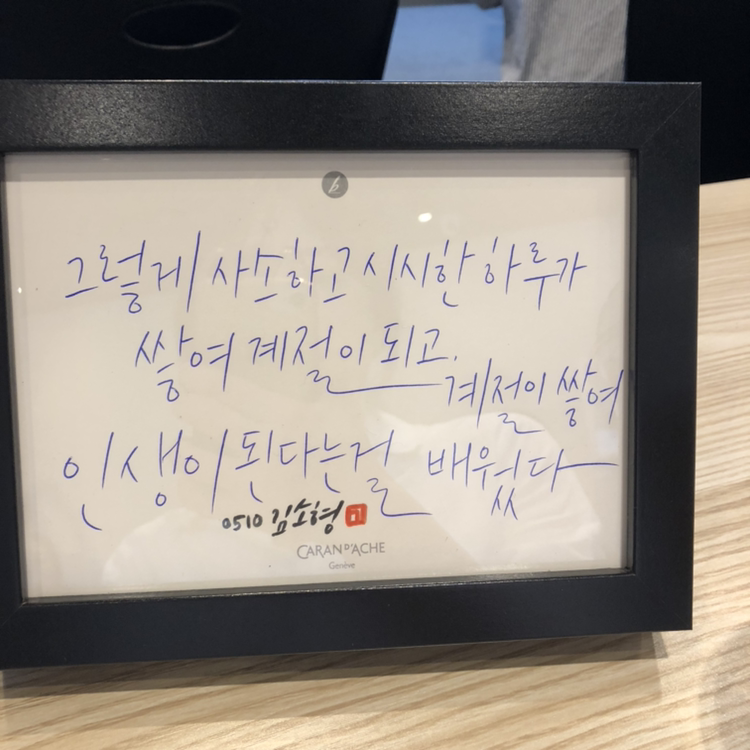 b
그렇게 사소하고 시시한 하루가
쌓여 계절이 되고,
계절이 쌓여
인생이 된다는걸 배웠다
0510 김소형
CARAN D'ACHE
Genève